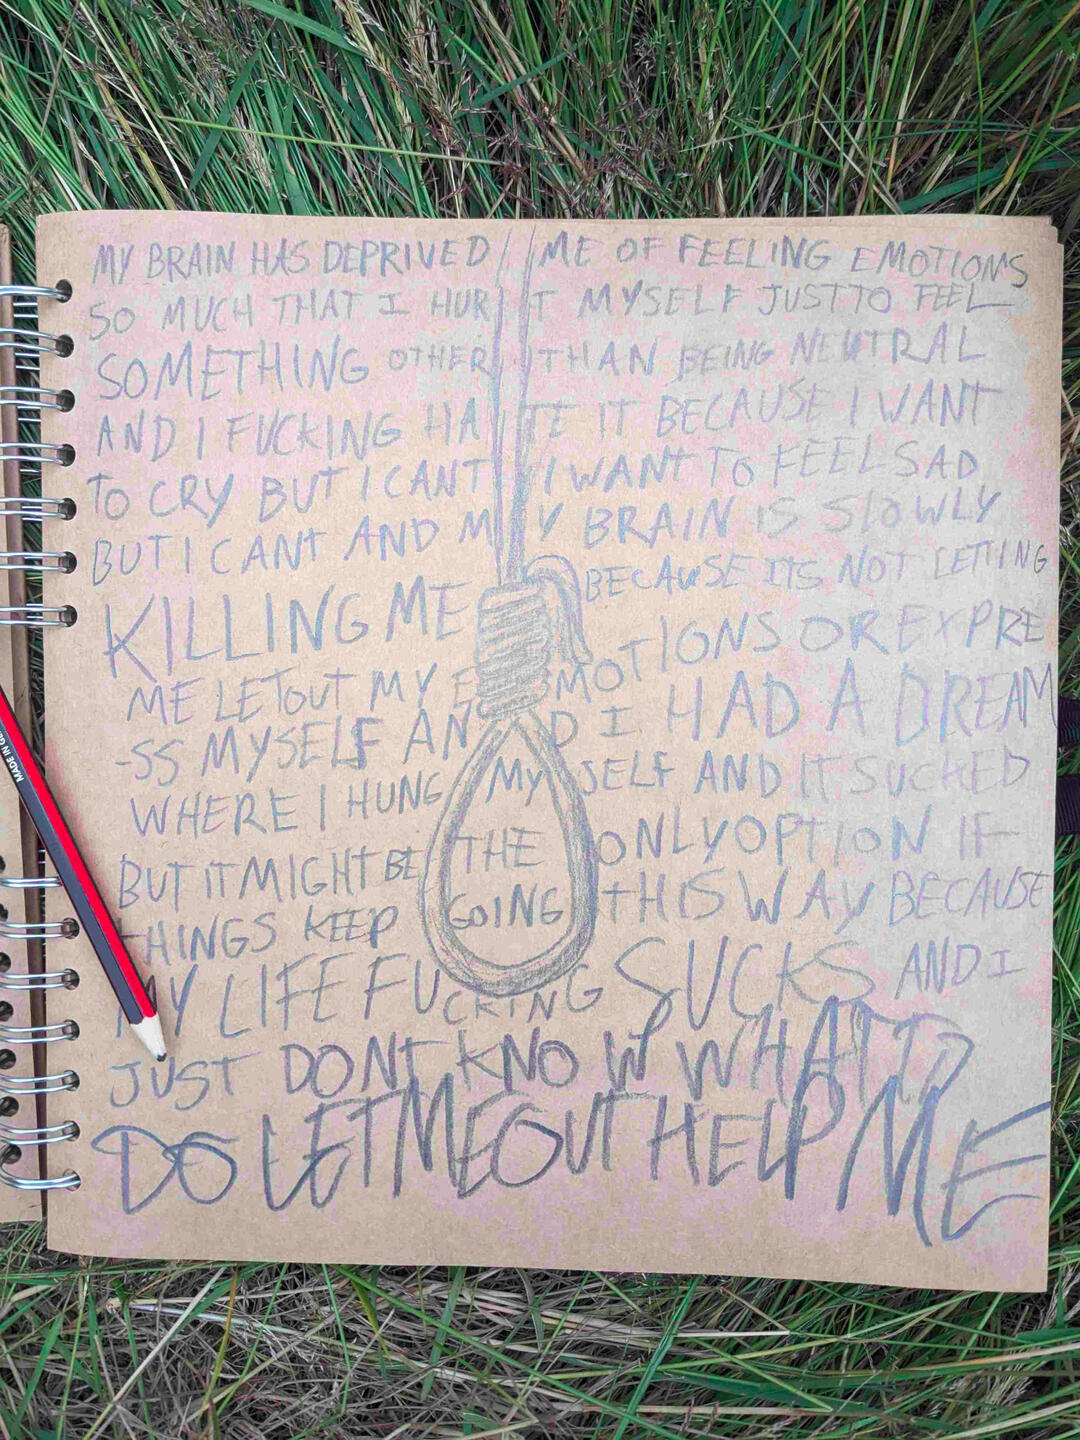 MY BRAIN HAS DEPRIVED ME OF FEELING EMOTIONS
SO MUCH THAT I HURT MYSELF JUST TO FEEL
SOMETHING OTHER THAN BEING NEUTRAL
AND I FUCKING HATE IT BECAUSE I WANT
TO CRY BUT I CANT I WANT TO FEEL SAD
BUT I CANT AND MY BRAIN IS SLOWLY
KILLING ME BECAUSE ITS NOT LETTING
ME LET OUT MY EMOTIONS OR EXPRE
-SS MYSELF AND I HAD A DREAM
WHERE I HUNG MYSELF AND IT SUCKED
BUT IT MIGHT BE THE ONLY OPTION IF
THINGS KEEP GOING THIS WAY BECAUSE
MY LIFE FUCKING SUCKS AND I
JUST DONT KNOW WHAT TO
DO LET ME OUT HELP ME
MADE IN GE